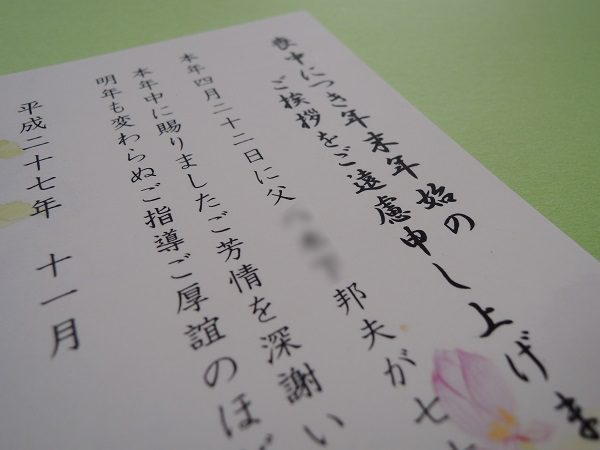 喪中につき年末年始の
ご挨拶をご遠慮申し上げま
本年四月二十二日に父 邦夫が七
本年中に賜りましたご芳情を深謝い
明年も変わらぬご指導ご厚誼のほど
平成二十七年 十一月